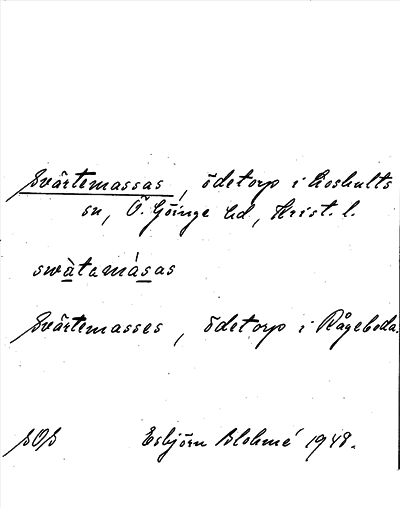 Svärtemassas, ödetorp i Loshults
sn, Ö. Göinge hd, Krist. l.
swàtamásas
Svärtemasses, ödetorp i Rågeboda.
SOS Esbjörn Blohmé 1948.